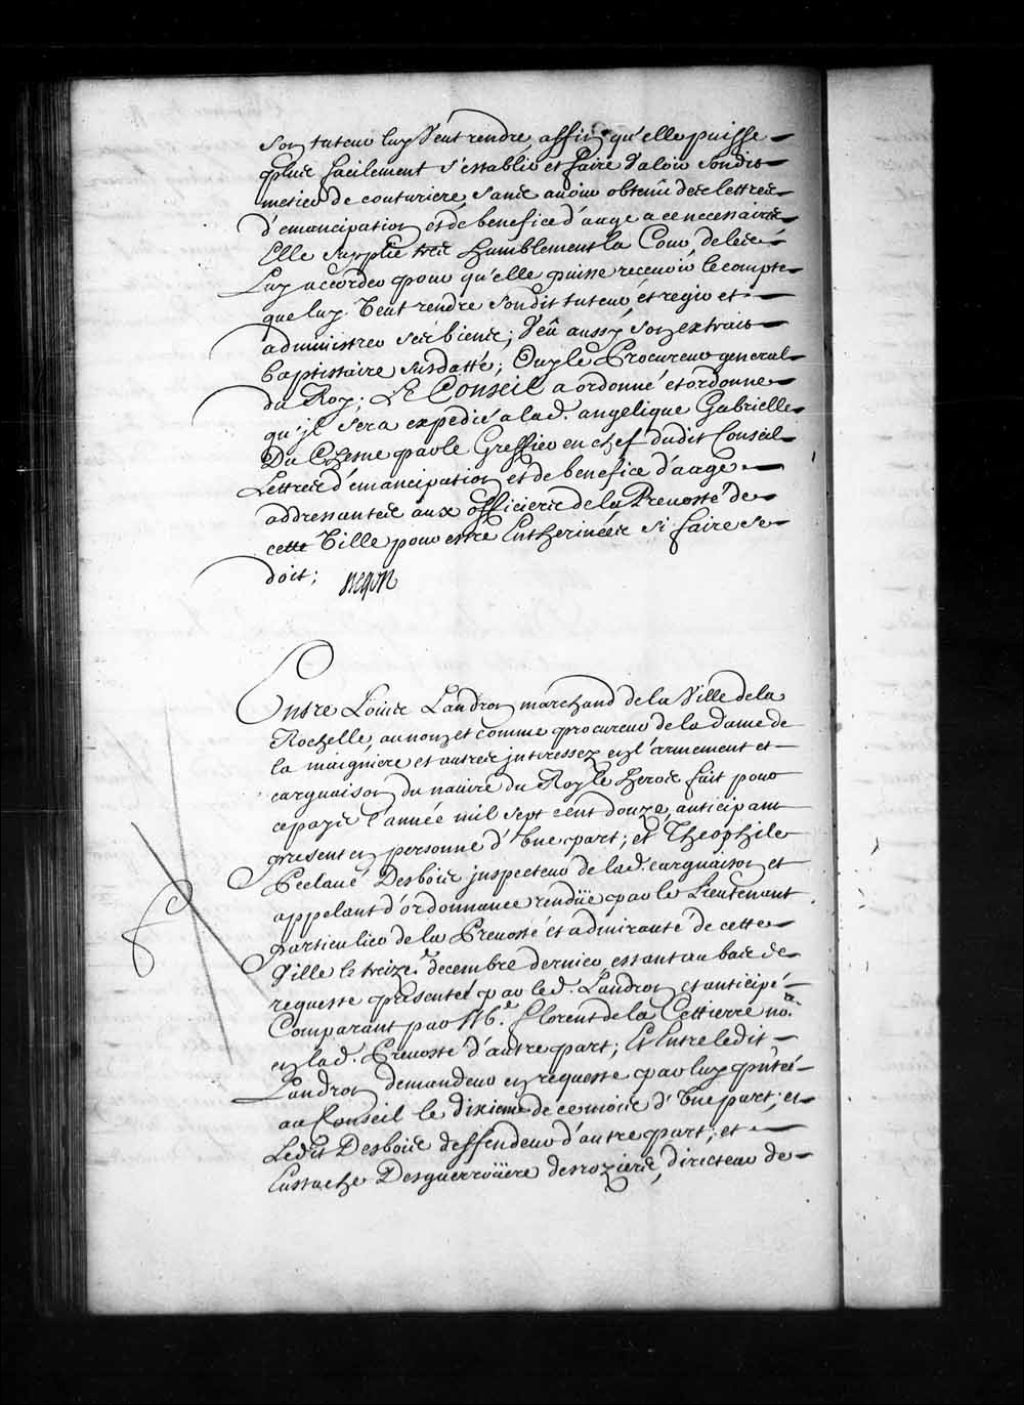 son tuteur luy veut rendre affin qu'elle puisse
plus facilement s'establir et faire valoir sondit
mestier de couturiere, sans avoir obtenu des lettres
d'emancipation et de benefice d'aage a ce necessaires
Elle supplie tres humblement la Cour, de les
Luy accorder pour qu'elle puisse recevoir le compte
que luy veut rendre sondit tuteur et regir et
administrer ses biens; Veû aussy son extrait
baptistaire susdatté; Ouy le Procureur general
du Roy; LE Conseil a ordonné et ordonne
qu'jl sera expedié a lad. angelique Gabrielle
Du Chesne par le Greffier en chef dudit Conseil
Lettres d'emancipation et de benefice d'aage
addressantes aux officiers de la Prevosté de
cette Ville pour estre Entherinées si faire se
doit; Begon
Entre Loüis Landron marchand de la Ville de la
Rochelle, au nom et comme procureur de la dame de
la maigniere et autres jnteressez en l'armement et
carguaison du navire du Roy le heros fait pour
ce pays l'année mil sept cent douze, anticipant
present en personne d'Vne part; et Theophile
Desbois jnspecteur de lad. carguaison et
appelant d'ordonnance rendüe par le Lieutenant
particulier de la Prevosté et admirauté de cette
Ville le treize.e decembre dernier, estant au bas de
requeste presentée par led. Landron et anticipé
Comparant par Me. florent de la Cettierre no.re
en lad. Prevosté d'autre part; Et Entre ledit
Landron demandeur en requeste par luy p'ntée
au Conseil le dixieme de ce mois d'Vne part; et
Ledit Desbois deffendeur d'autre part; et
Eustache Desguerroüere desroziers, directeur de